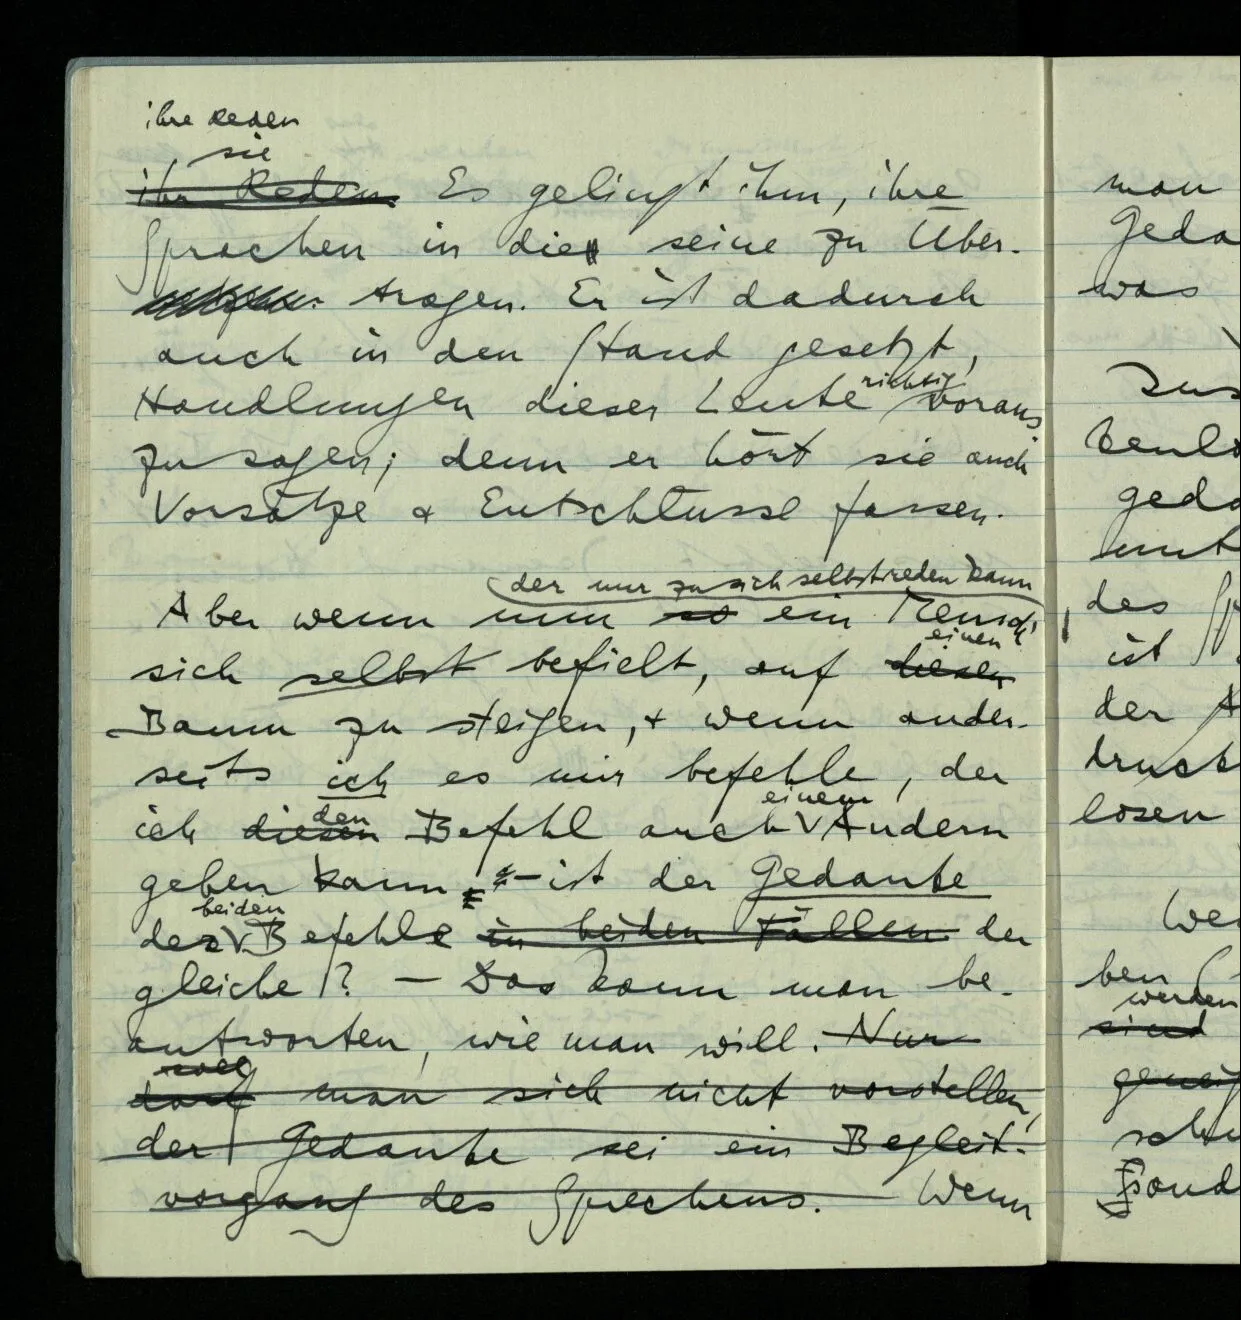 ihre Reden
sie
ihr Reden. Es gelingt ihm, ihre
Sprachen in die seine zu Über-
tragen. Er ist dadurch
auch in den Stand gesetzt,
richtig
Handlungen dieser Leute voraus
zu sagen; denn er hört sie auch
Vorsätze & Entschlüsse fassen.
der nur zu sich selbst reden kann
Aber wenn nun so ein Mensch
einen
sich selbst befielt, auf diesen
Baum zu steigen, & wenn ander-
seits ich es mir befehle, der
den einem
ich diesen Befehl auch Andern
geben kann – ist der Gedanke
beiden
der Befehle in beiden Fällen der
gleiche? – Das kann man be-
antworten, wie man will. Nur
soll
darf man sich nicht vorstellen,
der Gedanke sei ein Begleit-
vorgang des Sprechens. Wenn
man
Geda
was
ist
der
druck
losen
ben
werden
sind